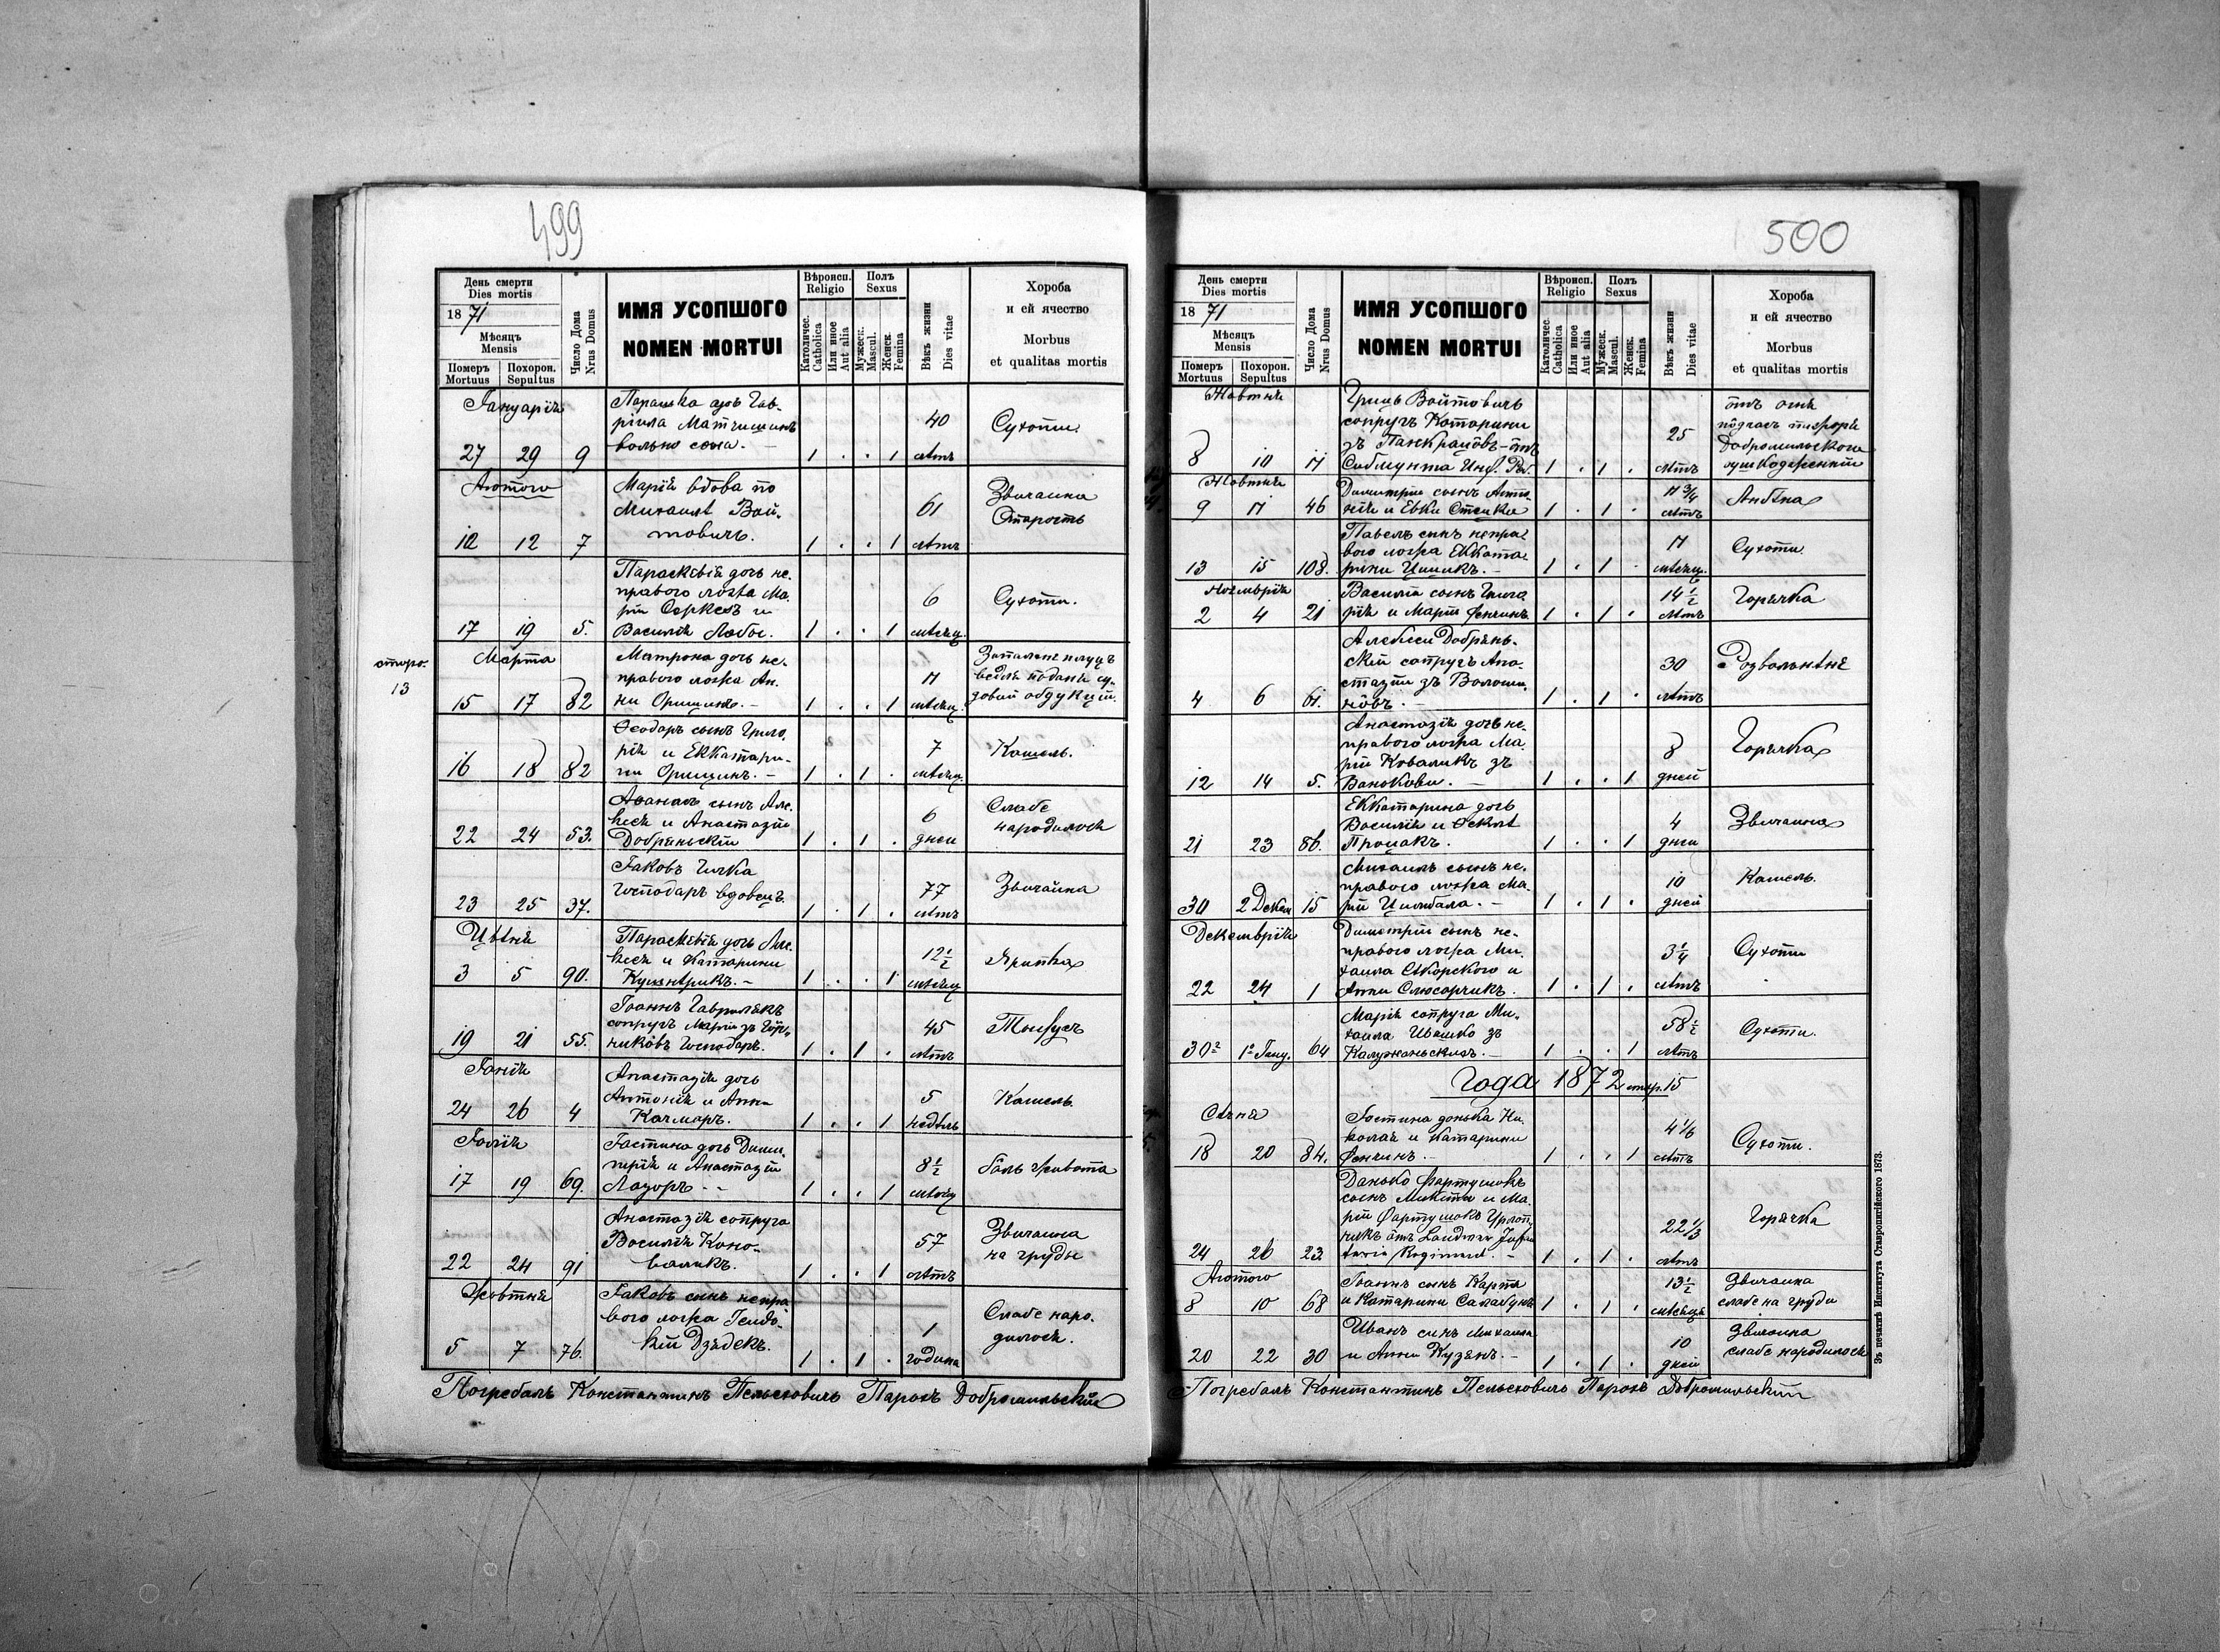 499
День смерти
Dies mortis
1871
Мѣсяцъ
Mensis
Померъ
Mortuus
Похорон.
Sepultus
Число Дома
Nrus Domus
ИМЯ УСОПШОГО
NOMEN MORTUI
Вѣроисп.
Religio
Католичес.
Catholica
Или иное
Aut alia
Полъ
Sexus
Мужеск.
Mascul.
Женск.
Femina
Вѣкъ жизни
Dies vitae
Хороба
и ей ячество
Morbus
et qualitas mortis
Іануарія
27 29 9
Парашка
40 лѣтъ
Сухоти
1 . . 1
Лютого
10 12 7
Марія вдова по
Михаилѣ Вой-
товичъ.
1 . . 1
61 лѣтъ
Звичайна
Старость
17 19 5.
Параскевія дочь не-
правого ложа Ма-
рiи и
Василія
1 . . 1
6 мѣсяц.
Сухоти.
стро.
13
Марта
15 17 82
Матрона дочь не-
правого ложа Ан-
ни Орищинъ. -
1 . . 1
11 мѣсяц.
16 18 82
Ѳеодоръ сынъ Григо-
рія и Еккатари-
ни Орищинъ. -
1 . 1 .
7 мѣсяц.
Кашель.
22 24 53.
сынъ Але-
ксія и Анастазіи
Добряньскіи
1 . 1 .
6 дней
Слабе
народилося
23 25 37.
Іаковъ Гичка
Господаръ вдовецъ.
1 . 1 .
77 лѣтъ
Звичайна
Цвѣтня
3 5 90.
Параскевія дочь Але-
ксія и Катарини
1 . . 1
12½ мѣсяц
19 21 55.
Іоаннъ Гаврилякъ
супругъ Маріи зъ
Господаръ.
1 . 1 .
45 лѣтъ
Тифусъ
Іюнія
24 26 4
Анастазія дочь
Антонія и Анни
Качмаръ.
1 . . 1
5 недѣль
Кашель.
Іюлія
17 19 69.
Іустина дочь Дими-
трія и Анастазіи
Лазоръ - -
1 . . 1
8½ мѣсяц
боль живота
22 24 91
Анастазія супруга
Василія Коно-
валикъ.
1 . . 1
57 лѣтъ
Звичайна
на груды
Жовтня
5 7 76.
Іаковъ сынъ непра-
вого ложа
Дзядекъ.
1 . 1 .
1 година
Слабе наро-
дилося.
Погребалъ Константинъ Пельехович Парохъ Добромильскій
500
День смерти
Dies mortis
1871
Мѣсяцъ
Mensis
Померъ
Mortuus
Похорон.
Sepultus
Число Дома
Nrus Domus
ИМЯ УСОПШОГО
NOMEN MORTUI
Вѣроисп.
Religio
Католичес.
Catholica
Или иное
Aut alia
Полъ
Sexus
Мужеск.
Mascul.
Женск.
Femina
Вѣкъ жизни
Dies vitae
Хороба
и ей ячество
Morbus
et qualitas mortis
Жовтня
8 10 11
Гриць Войтовичъ
супругъ Катарини
зъ Панкрацôвъ - отъ
1 . 1 .
25 лѣтъ
отъ огня
Добромильского
Жовтня
9 11 46
Димитрій сынъ Анто-
нія и Евки Стецки
1 . 1 .
11¾ лѣтъ
13 15 108.
Павелъ сынъ непра-
вого ложа Екката-
рини
1 . 1 .
11 мѣсяц.
Сухоти
Ноемврія
2 4 21
Василій сынъ Григо-
рія и Маріи Фенчинъ
1 . 1 .
14½ лѣтъ
Горячка
4 6 61.
Алексій Добрянь-
скій супругъ Ана-
стазіи зъ Волоши-
нôвъ. -
1 . 1 .
30 лѣтъ
Розвольнѣнє
12 14 5.
Анастазія дочь не-
правого ложа Ма-
ріи Коваликъ зъ
Ванькови. -
1 . . 1
8 дней
Горячка
21 23 86.
Еккатарина дочь
Василія и Ѳеклѣ
Процакъ.
1 . . 1
4 днѣи
Звичайна
30 2 Декем 15
Михаилъ сынъ не-
правого ложа Ма-
ріи Цимбала. -
1 . 1 .
10 дней
Кашель.
Декемврія
22 24 1
Димитрій сынъ не-
правого ложа Ми-
хаила Сікорского и
Анни Слюсарчикъ.
1 . 1 .
3¼ лѣтъ
Сухоти
30 1 Гену. 64
Марія супруга Ми-
хаила Ивашко зъ
Калужаньскихъ. -
1 . . 1
58½ лѣтъ
Сухоти.
Года 1872 стор. 15
Сѣчня
18 20 84.
Іустина донька Ни-
колая и Катарини
Фенчинъ. -
1 . . 1
4 1/6 лѣтъ
Сухоти.
24 26 23
Данько Фартушокъ
сынъ Микити и Ма-
ріи Фартушокъ Урлоп-
никъ отъ Landwer Infan-
teria Regiment. -
1 . 1 .
22 1/3 лѣтъ
Горячка
Лютого
8 10 68
Іоаннъ сынъ Карпа
и Катарини
1 . 1 .
13½ мѣсяця
Звичайна
слабе на груди
20 22 30
Иванъ сынъ Михаила
и Анни Кузянъ. -
1 . 1 .
10 дней
Звичайна
слабе народилося
Погребалъ Константинъ Пельехович Парохъ Добромильскіи
Зъ печатнѣ Института Ставропигійского 1873.